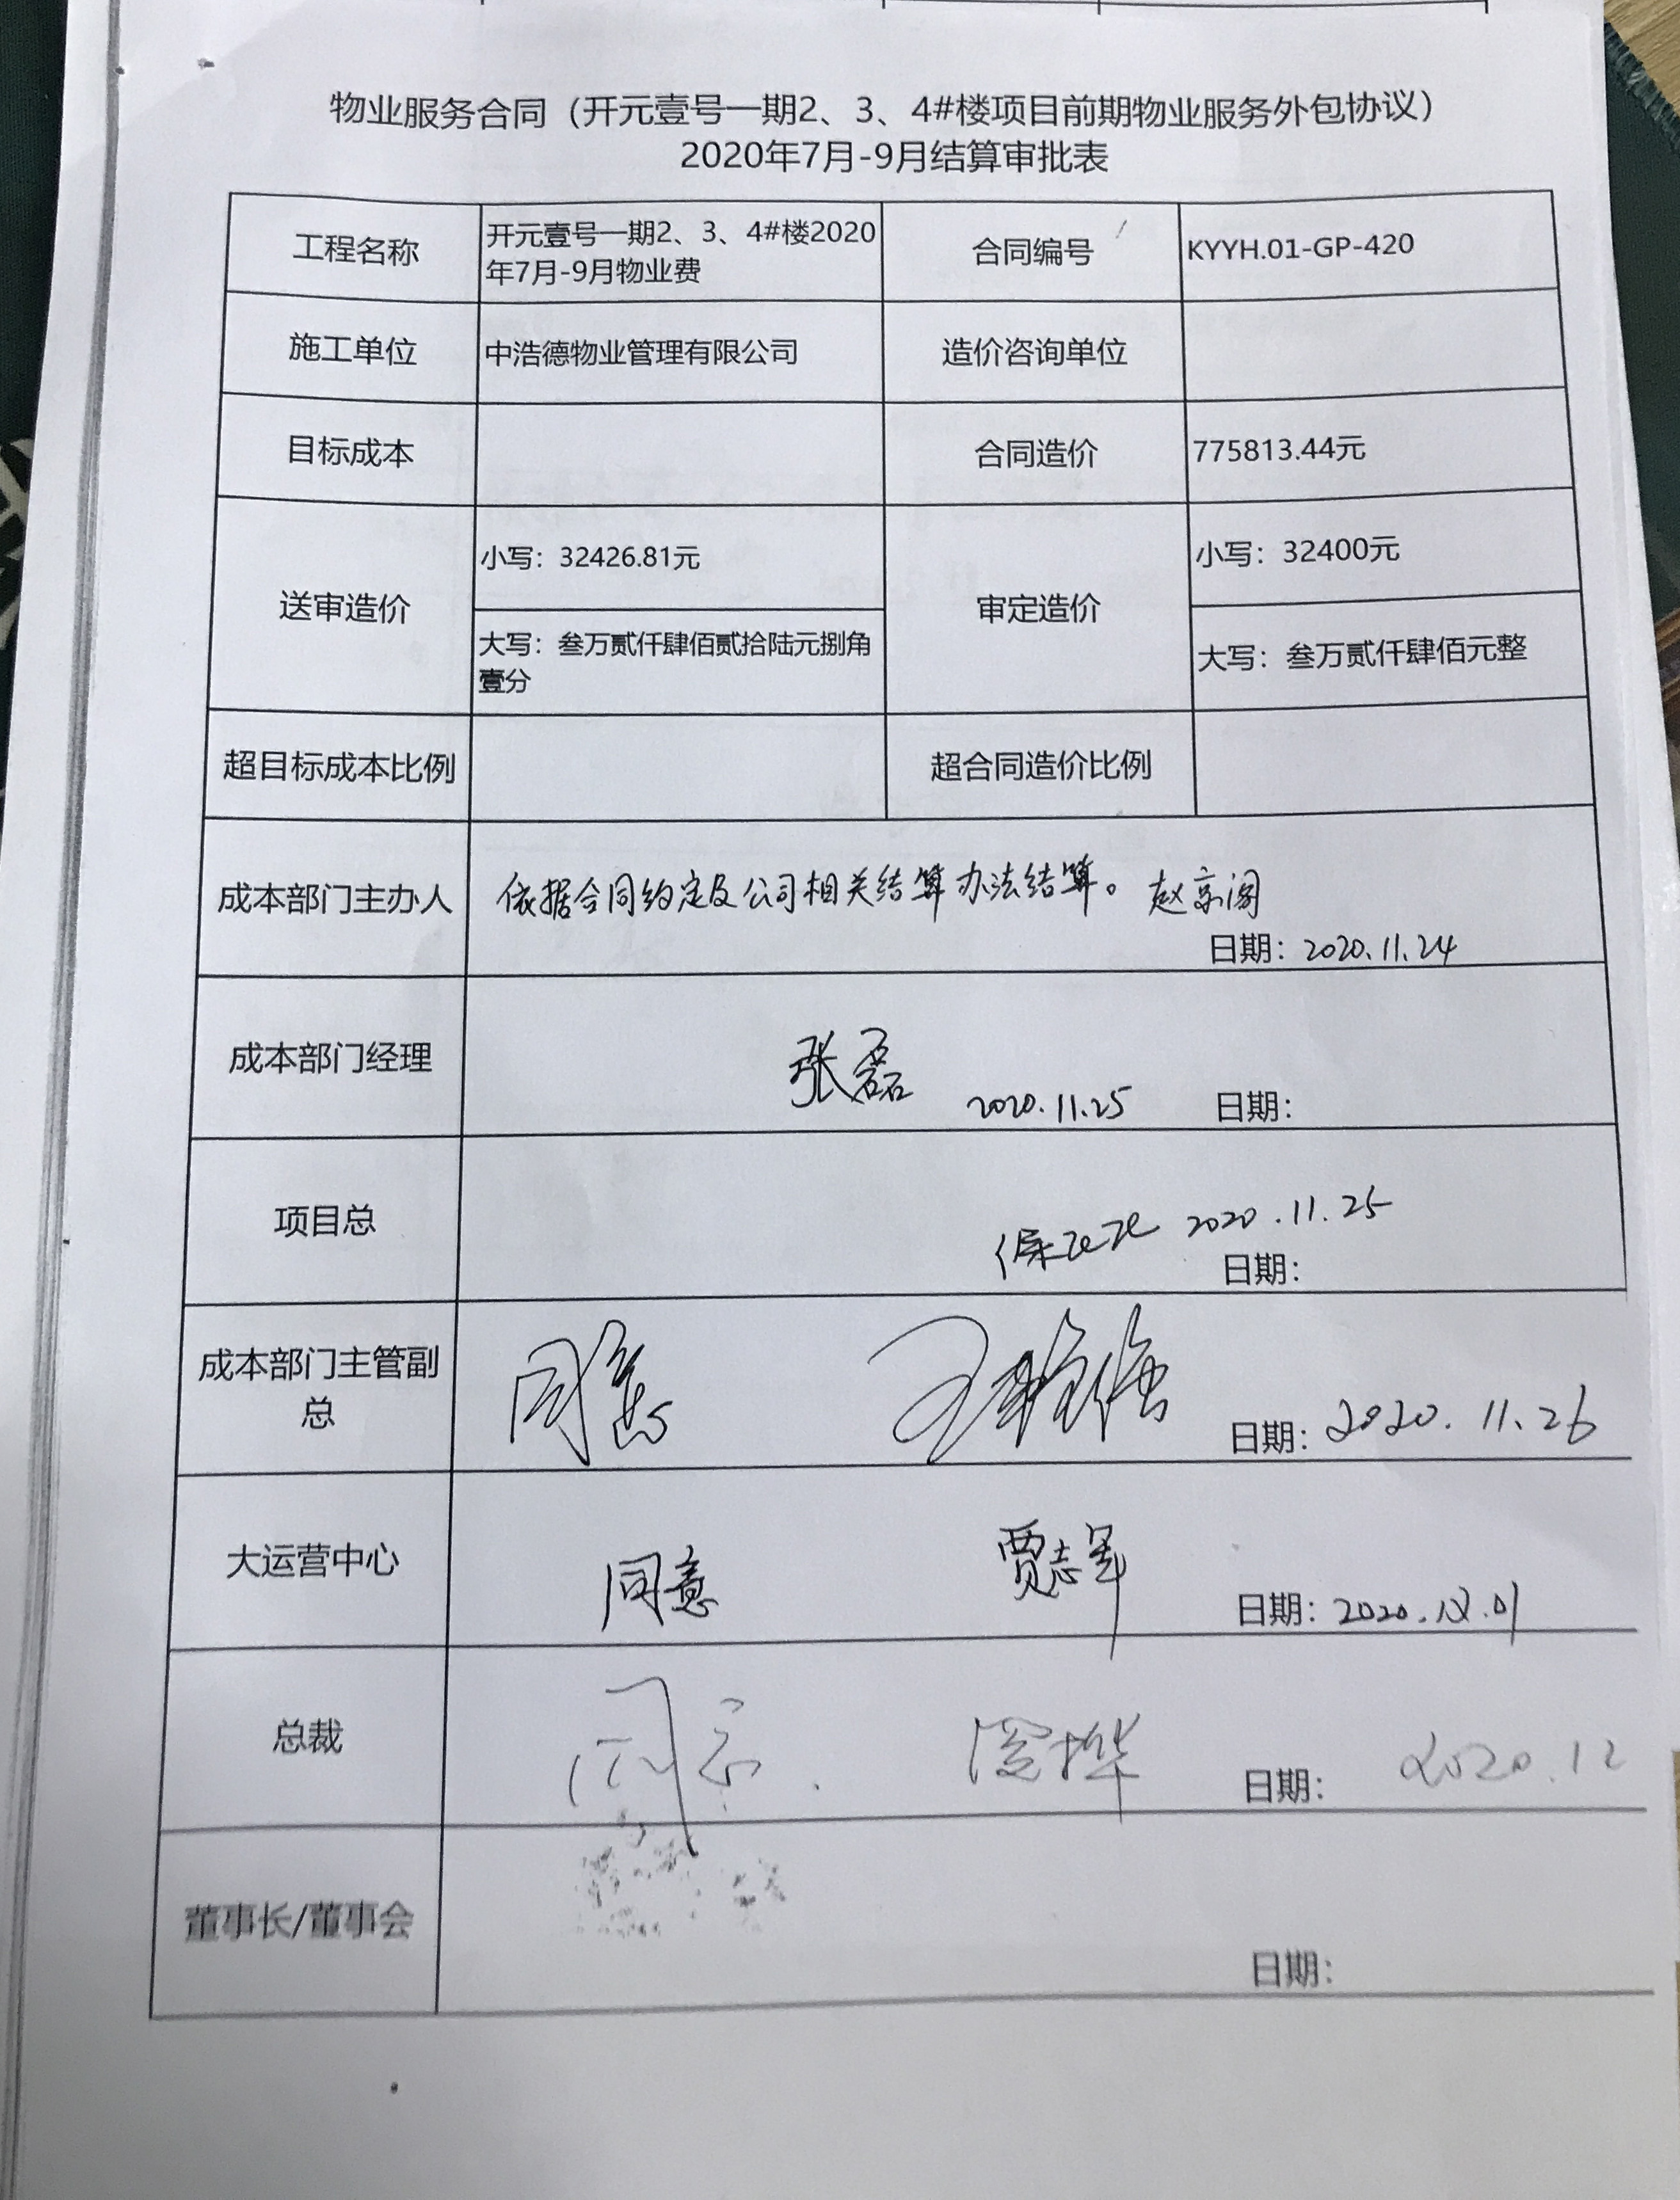 物业服务合同（开元壹号一期2、3、4#楼项目前期物业服务外包协议）
2020年7月-9月结算审批表
工程名称
开元壹号一期2、3、4#楼2020
年7月-9月物业费
合同编号
KYYH.01-GP-420
施工单位
中浩德物业管理有限公司
造价咨询单位
目标成本
合同造价
775813.44元
送审造价
小写：32426.81元
大写：叁万贰仟肆佰贰拾陆元捌角
壹分
审定造价
小写：32400元
大写：叁万贰仟肆佰元整
超目标成本比例
超合同造价比例
成本部门主办人
依据合同约定及公司相关结算办法结算。
日期：2020.11.24
成本部门经理
张磊 2020.11.25 日期：
项目总
2020.11.25
日期：
成本部门主管副
总
同意
日期：2020.11.26
大运营中心
同意 贾志军
日期：2020.12.01
总裁
同意
日期： 2020.12
董事长/董事会
日期：